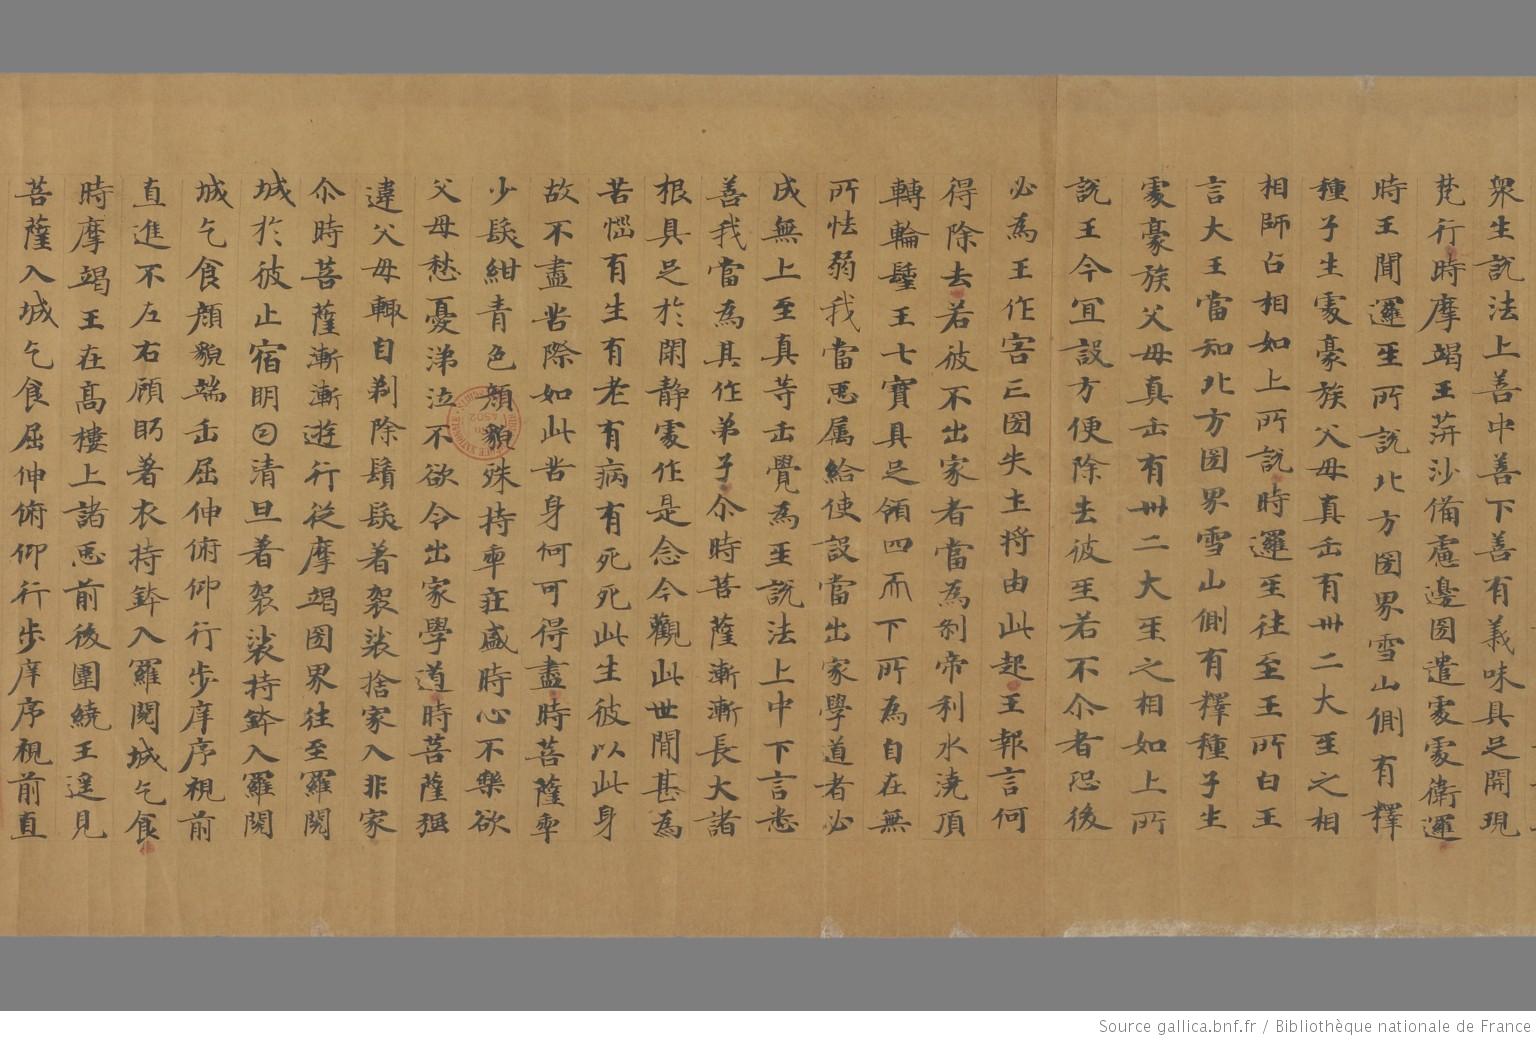 衆生説法上善中善下善有義味具足開現
梵行時摩竭王蓱沙備慮邊圀遣䖏䖏衛邏
時王聞邏𤯔所説北方圀界雪山側有釋
種子生䖏豪族父母真𠙺有卅二大𤯔之相
相師占相如上所説時邏𤯔往至王所白王
言大王當知北方圀界雪山側有釋種子生
䖏豪族父母真𠙺有卅二大𤯔之相如上所
説王今冝設方便除去彼𤯔若不尒者恐後
必為王作害亡圀失土將由此起王報言何
得除去若彼不出家者當為刹帝利水澆頂
轉輪𨤲王七寳具足領四而下所為自在無
所怯弱我當𢘑属給使設當出家學道者必
成無上至真等𠙺覺為𤯔説法上中下言悉
善我當為其作弟子尒時菩薩漸漸長大諸
根具足於閑静䖏作是念今觀此世間甚為
苦惱有生有老有病有死死此生彼以此身
故不盡苦際如此苦身何可得盡時菩薩年
少髮紺青色顔貌殊持年壮盛時心不樂欲
父母愁憂涕泣不欲令出家學道時菩薩强
違父母輙自剃除鬚髮著袈裟捨家入非家
尒時菩薩漸漸遊行従摩竭圀界往至羅閱
城於彼止宿明𡆠清旦著袈裟持鉢入羅閱
城乞食顔貌端𠙺屈伸俯仰行歩庠序視前
直進不左右顧眄著衣持鉢入羅閱城乞食
時摩竭王在髙樓上諸𢘑前後圍繞王遥見
菩薩入城乞食屈伸俯仰行歩庠序視前直
Source gallica.bnf.fr / Bibliothèque nationale de France